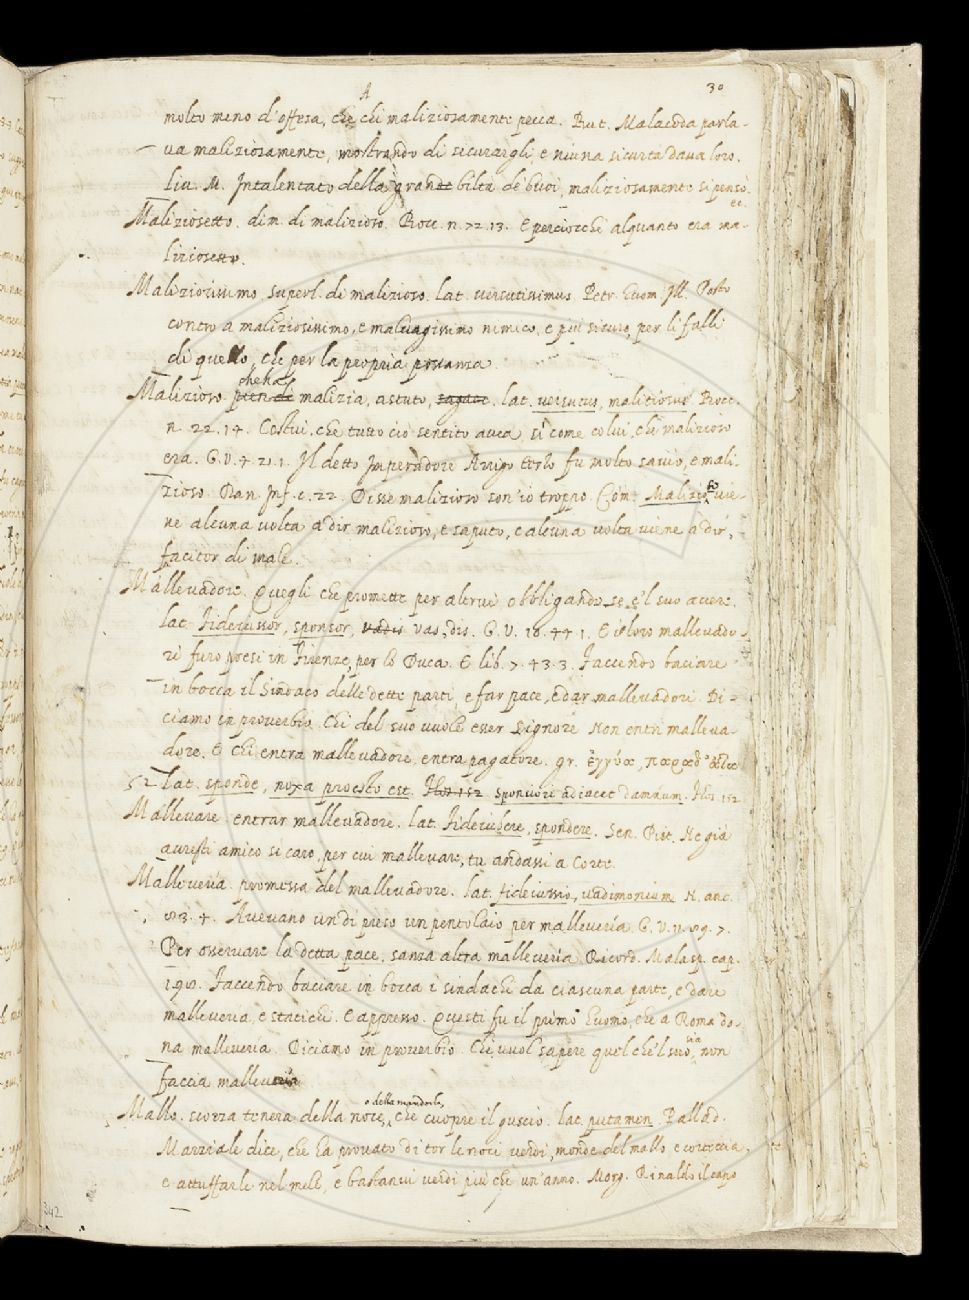 30
A
molto meno d'offesa, che chi maliziosamente pecca. But. Malacoda parla-
ua maliziosamente, mostrando di sicurargli, e niuna sicurtà daua loro.
liu. M. Intalentato della grande biltà de' buoi, maliziosamente si pensò.
ec.
Maliziosetto. dim. di malizioso. Bocc. n. 72. 13. E perciocchè alquanto era ma-
liziosetto.
Maliziosissimo. superl. di malizioso. lat. uersutissimus. Petr. Huom. Ill. Posto
contro a maliziosissimo, e maluagissimo nemico, e più sicuro, per li falli
di quello, che per la propria possanza.
che ha
Malizioso. pien di malizia, astuto, sagace. lat. uersutus, malitiosus. Bocc.
n. 22. 14. Costui, che tutto ciò sentito auea, sì come colui, che malizioso
era. G. V. 4. 21. 1. Il detto Imperadore Arrigo terzo fu molto sauio, e mali-
zioso. Dan. Inf. c. 22. Disse malizioso son' io troppo. Com. Malizioso uie-
ne alcuna uolta a dir malizioso, e saputo, e alcuna uolta uiene a dir,
facitor di male.
Malleuadore. Quegli che promette per altrui obbligando se, e 'l suo auere.
lat. fideiussor, sponsor, uadis uas, dis. G. V. 10. 44. 1. E i loro malleuado-
ri furo presi in Firenze, per lo Duca. E lib. 7. 43. 3. Faccendo baciare
in bocca il sindaco delle dette parti, e far pace, e dar malleuadori. Di-
ciamo in prouerbio. Chi del suo vuole esser signore Non entri malleua-
dore. E chi entra malleuadore, entra pagatore. gr. ἐγγύα,
52 Lat. sponde, noxa praesto est. Flos 152 sponsori adiacet damnum. Flos 152
Malleuare. entrar malleuadore. lat. fideiubere, spondere. Sen. Pist. Ne già
auresti amico sì caro, per cui malleuare, tu andassi a Corte.
Malleueria. promessa del malleuadore. lat. fideiussio, uadimonium. N. ant.
83. 4. Aueuano un dì preso un pentolaio per malleueria. G. V. 11. 89. 7.
Per osseruare la detta pace, sanza altra malleueria. Ricord. Malasp. cap.
190. Faccendo baciare in bocca i sindachi da ciascuna parte, e dare
malleueria, e statichi. E appresso. Questi fu il primo Huomo, che a Roma do-
na malleueria. Diciamo in prouerbio. Chi vuol sapere quel che 'l suo sia, non
faccia malleueria
o della mandorla,
Mallo. scorza tenera della noce, che cuopre il guscio. lat. putamen. Pallad.
Marziale dice, che ha prouato di tor le noci uerdi, monde del mallo e corteccia,
e attuffarle nel mele, e bastanui uerdi più che un' anno. Morg. Rinaldo il capo
342